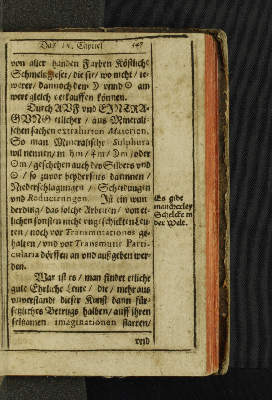 Das IX. Capitel 147
von aller handen Farben Köstliche
Schmeltzgläser, die sie / wo nicht /
werer / dannoch dem ☽ vnnd ☉ am
werth gleich verkauffen können.
Durch AUF vnd EINTRA-
GUNG etlicher / aus Minerali-
schen sachen extrahirten Materien.
So man Mineralische Sulphura
wil nennen / in
geschehen auch der Silbers vnd
☉ / so zuvor beyderseits darinnen /
Niederschlagungen / Scheidungen
vnd Reducirungen. Ist ein wun
derding / das solche Arbeiten / von et-
lichen sonsten nicht vngeschickten Leu-
ten / noch vor Transmutationes ge-
halten / vnd vor Transmutir Parti-
cularia dörffen an vnd außgeben wer-
den.
War ist es / man findet etliche
gute Ehrliche Leute / die / mehr aus
vnverstandt dieser Kunst dann für-
setzliches Betrugs halben / auff ihren
seltzamen imaginationen starren /
vnd
Es gibt
mancherley
Schelcke in
der Welt.